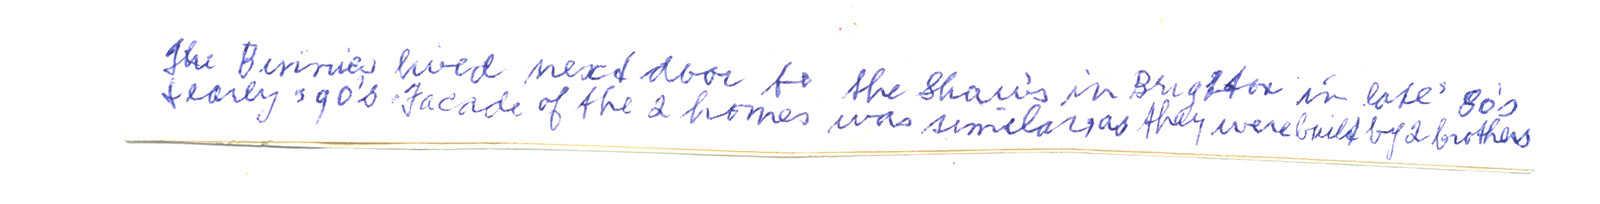 The Binnies lived next door to the Shaw's in Brighton in late '80's
& early '90's. Facade of the 2 homes was similar, as they were built by 2 brothers